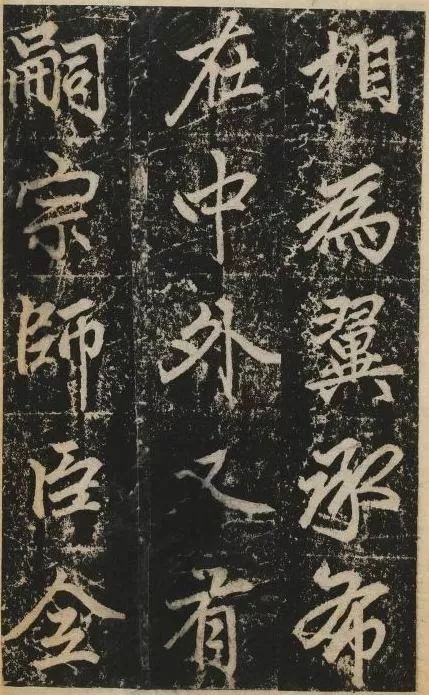 相為翼承布
在中外又有
嗣宗師臣全